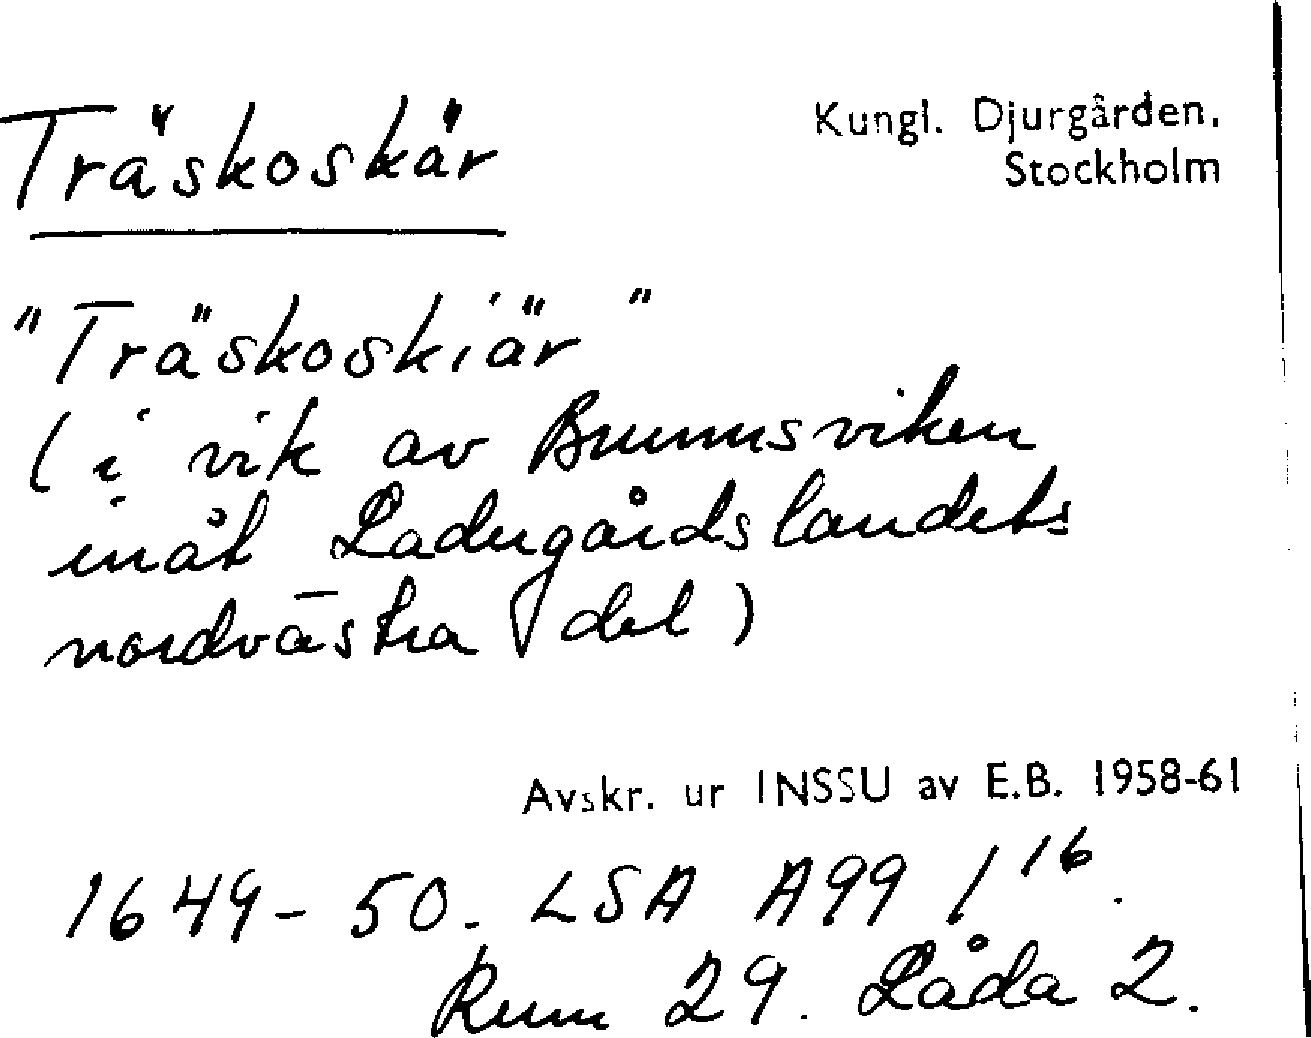 Träskoskär
Kungl. Djurgården.
Stockholm
"Träskoskiär"
(i vik av Brunnsviken
inåt Ladugårdslandets
nordvästra del)
Avskr. ur INSSU av E.B. 1958-61
1649-50. LSA A99 / 16.
Rum 29. Låda 2.